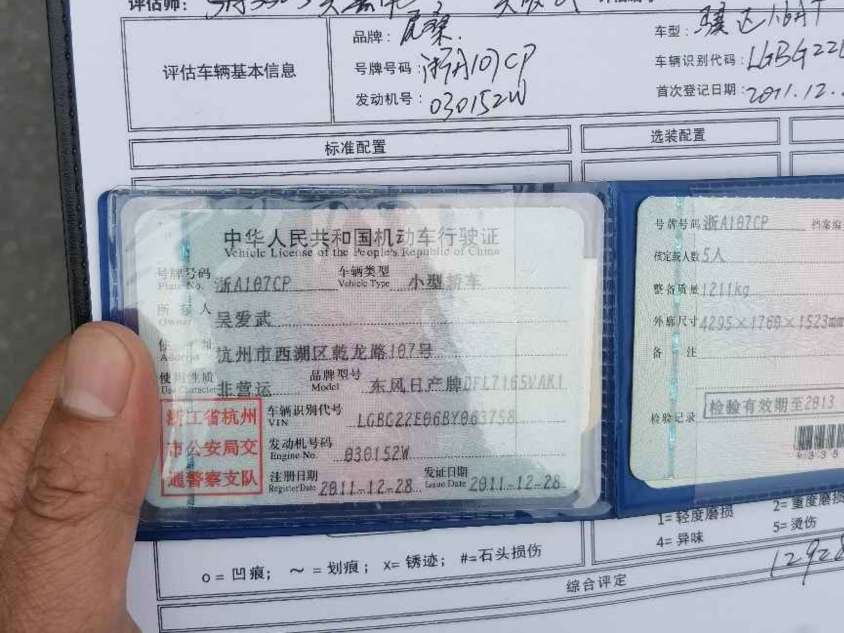 评估师:
评估车辆基本信息
品牌:
车型:
号牌号码: 浙A107CP
车辆识别代码: LGBG22E
发动机号: 030152W
首次登记日期: 2011.12.
标准配置
选装配置
中华人民共和国机动车行驶证
Vehicle License of the People's Republic of China
号牌号码 浙A107CP 车辆类型 小型轿车
Plate No. Vehicle Type
所有人 吴爱武
Owner
杭州市西湖区乾龙路107号
Address
使用性质 非营运 品牌型号 东风日产牌DFL7165VAK1
Use Character Model
浙江省杭州
市公安局交
通警察支队
车辆识别代号 LGBG22E06BY063758
VIN
发动机号码 030152W
Engine No.
注册日期 2011-12-28 发证日期 2011-12-28
Register Date Issue Date
号牌号码 浙A107CP 档案编
核定载人数 5人
整备质量 1211kg
外廓尺寸 4295×1760×1523mm
备注
检验记录 检验有效期至2013
1=轻度磨损 2=重度磨损
4=异味 5=烫伤
o=凹痕; ~=划痕; x=锈迹; #=石头损伤
综合评定